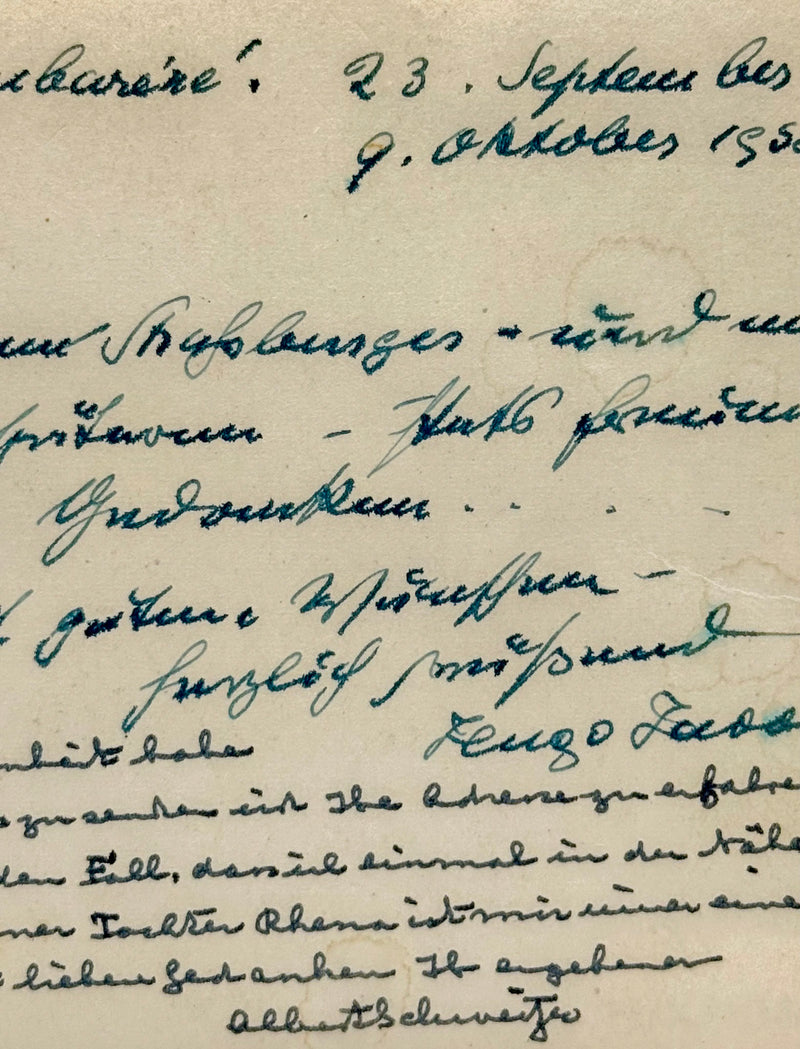 ambaréné. 23. September
9. Oktober 195
Straßburger - und
- stets
Gedanken . . . . -
guten Wünschen -
herzlich grüßend
Hugo
habe
zu senden und Ihre Adresse zu erfahre
den Fall, dass ich einmal in der Nähe
ner Tochter Rhena ist mir immer eine
lieben Gedanken Ihr ergebener
Albert Schweitzer